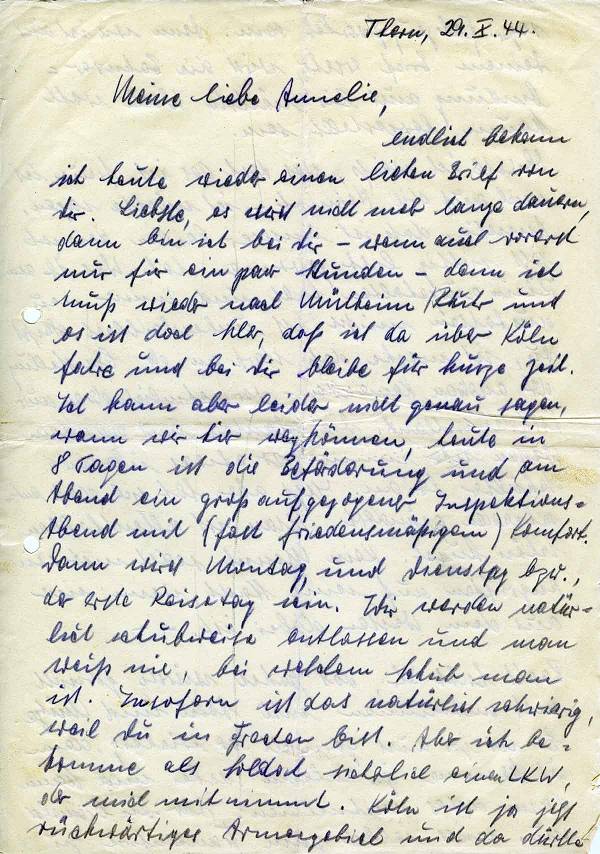 Thorn, 29. X. 44.
Meine liebe Annelie,
endlich bekam
ich heute wieder einen lieben Brief von
Dir. Liebste, es wird nicht mehr lange dauern,
dann bin ich bei Dir – wenn auch vorerst
nur für ein paar Stunden – denn ich
muß wieder nach Mülheim / Ruhr und
es ist doch klar, daß ich da über Köln
fahre und bei Dir bleibe für kurze Zeit.
Ich kann aber leider nicht genau sagen,
wann wir hier wegkönnen, heute in
8 Tagen ist die Beförderung und am
Abend ein groß aufgezogener Inspektions=
Abend mit (fast friedensmäßigem) Komfort.
Dann wird Montag, und Dienstag bzw.,
der erste Reisetag sein. Wir werden natür=
lich schubweise entlassen und man
weiß nie, bei welchem Schub man
ist. Insofern ist das natürlich schwierig,
weil Du in bist. Aber ich be=
komme als Soldat sicherlich einen LKW,
der mich mitnimmt. Köln ist ja jetzt
rückwärtiges Armeegebiet und da dürfte